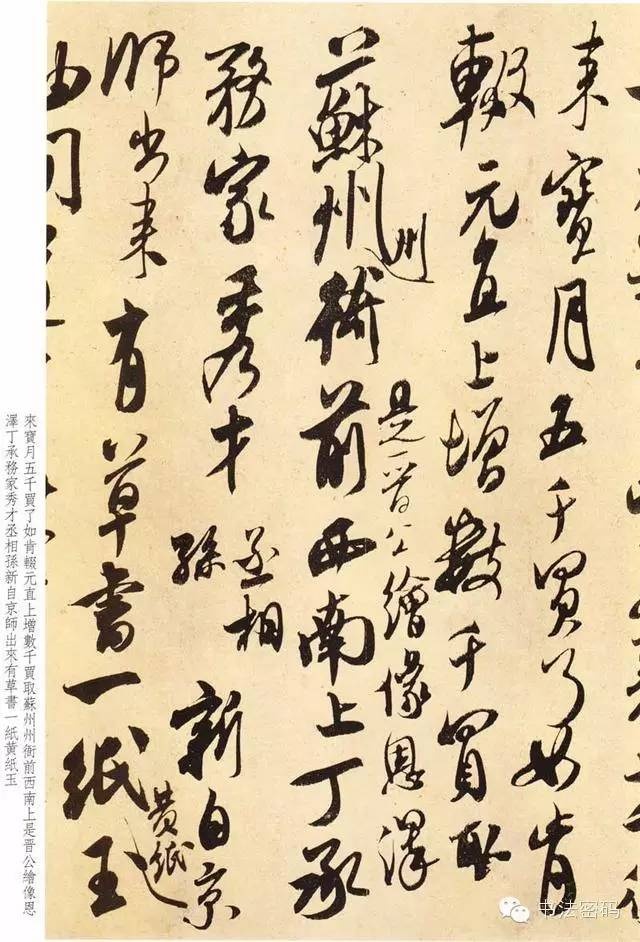 來寶月五千買了如肯
輟元直上增數千買取
州
是晉公繪像恩澤
蘇州衙前西南上丁承
務家秀才
丞相
孫
新自京
師出來有草書一紙玉
黃紙
來寶月五千買了如肯輟元直上增數千買取蘇州州衙前西南上是晉公繪像恩
澤丁承務家秀才丞相孫新自京師出來有草書一紙黃紙玉
书法密码